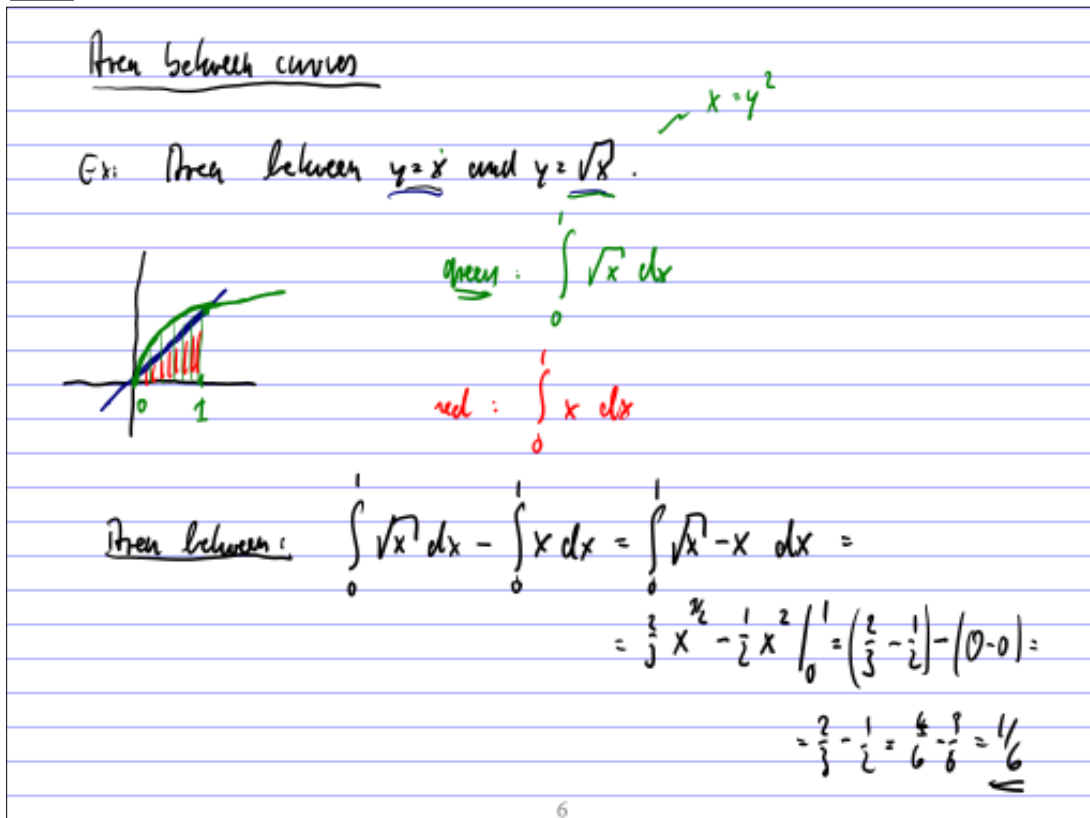 Area between curves
x = y²
Ex: Area between y = x and y = √x .
green : ∫₀¹ √x dx
0 1
red : ∫₀¹ x dx
Area between : ∫₀¹ √x dx - ∫₀¹ x dx = ∫₀¹ √x - x dx =
= 2/3 x^(3/2) - 1/2 x² |₀¹ = (2/3 - 1/2) - (0-0) =
= 2/3 - 1/2 = 4/6 - 3/6 = 1/6
6